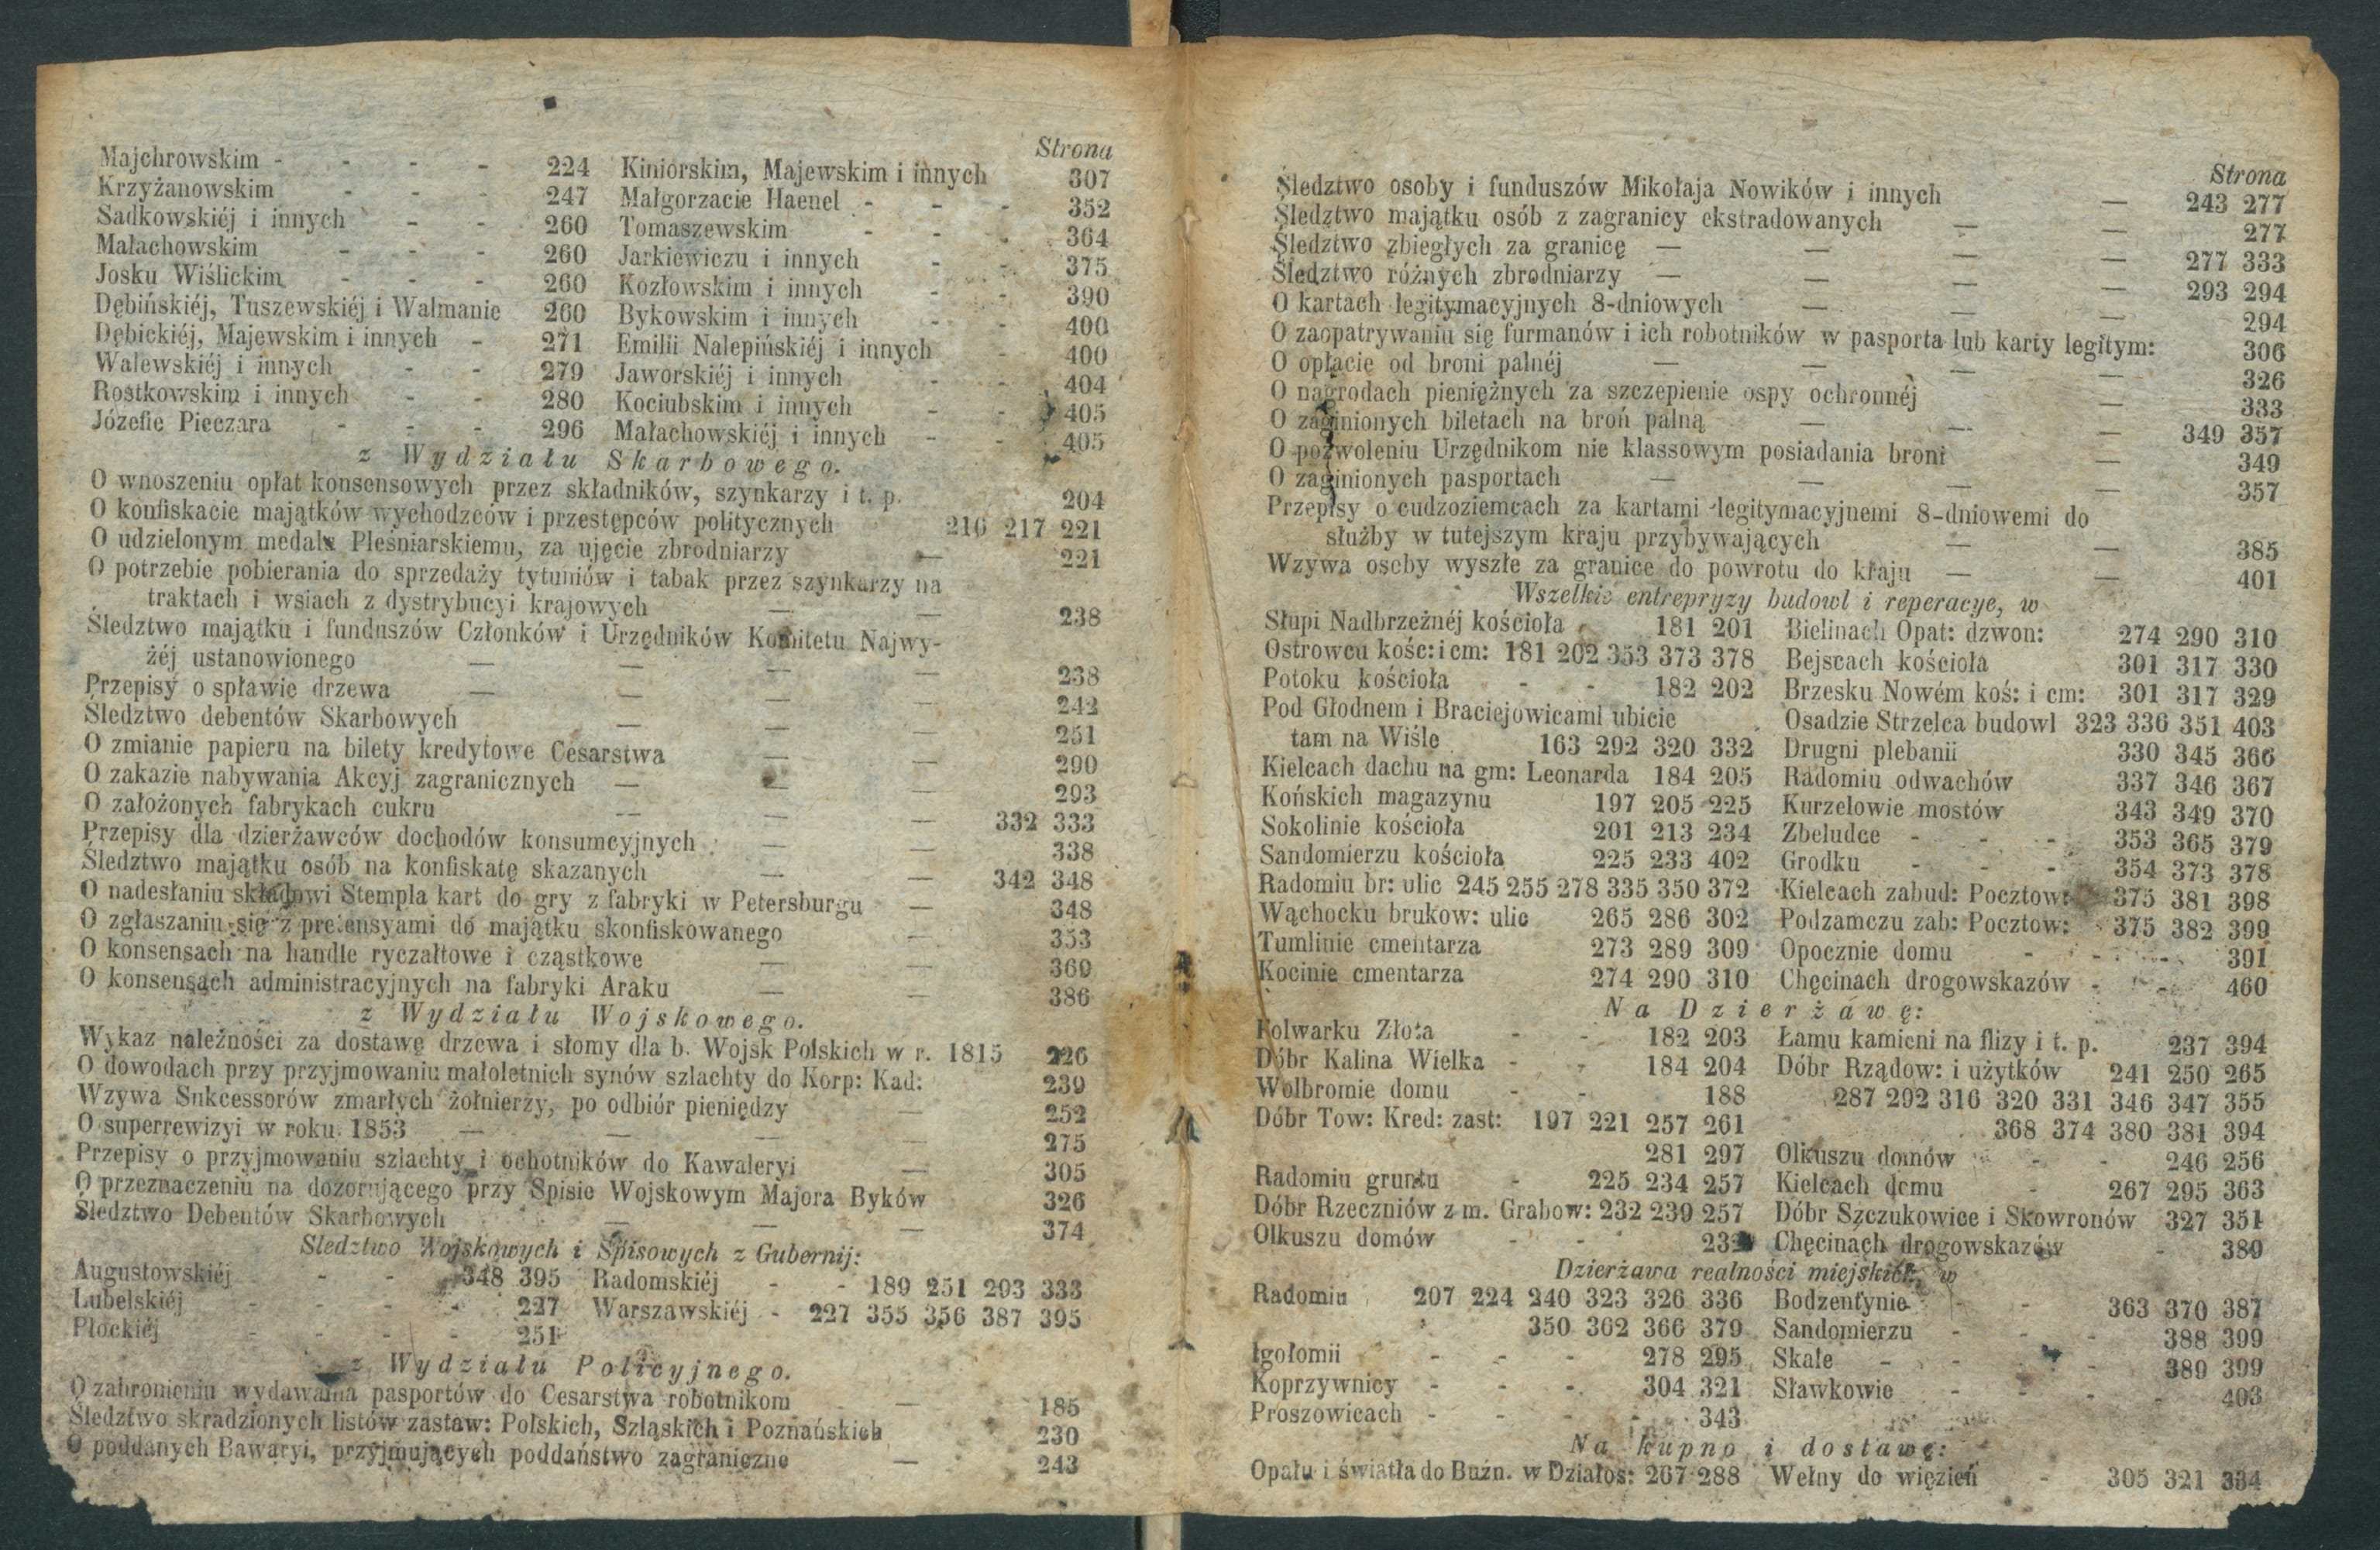 Strona
Majchrowskim - - - - 224 Kiniorskim, Majewskim i innych 307
Krzyżanowskim - - - 247 Małgorzacie Haenel - - - 352
Sadkowskiéj i innych - - 260 Tomaszewskim - - - 364
Małachowskim - - - 260 Jarkiewiczu i innych - - 375
Josku Wiślickim - - - 260 Kozłowskim i innych - - 390
Dębińskiéj, Tuszewskiéj i Walmanie 260 Bykowskim i innych - - 400
Dębickiéj, Majewskim i innych - 271 Emilii Nalepińskiéj i innych - 400
Walewskiéj i innych - - 279 Jaworskiéj i innych - - 404
Rostkowskim i innych - - 280 Kociubskim i innych - - 405
Józefie Pieczara - - - 296 Małachowskiéj i innych - - 405
z Wydziału Skarbowego.
O wnoszeniu opłat konsensowych przez składników, szynkarzy i t. p. 204
O konfiskacie majątków wychodzców i przestępców politycznych 216 217 221
O udzielonym medalu Pleśniarskiemu, za ujęcie zbrodniarzy — 221
O potrzebie pobierania do sprzedaży tytuniów i tabak przez szynkarzy na
traktach i wsiach z dystrybucyi krajowych — — 238
Śledztwo majątku i funduszów Członków i Urzędników Komitetu Najwy-
żéj ustanowionego — — — — 238
Przepisy o spławie drzewa — — — — 242
Śledztwo debentów Skarbowych — — — 251
O zmianie papieru na bilety kredytowe Cesarstwa — — 290
O zakazie nabywania Akcyj zagranicznych — — — 293
O założonych fabrykach cukru — — — 332 333
Przepisy dla dzierżawców dochodów konsumcyjnych — — 338
Śledztwo majątku osób na konfiskatę skazanych — — 342 348
O nadesłaniu składowi Stempla kart do gry z fabryki w Petersburgu — 348
O zgłaszaniu się z pretensyami do majątku skonfiskowanego — 353
O konsensach na handle ryczałtowe i cząstkowe — — 369
O konsensach administracyjnych na fabryki Araku — — 386
z Wydziału Wojskowego.
Wykaz należności za dostawę drzewa i słomy dla b. Wojsk Polskich w r. 1815 226
O dowodach przy przyjmowaniu małoletnich synów szlachty do Korp: Kad: 239
Wzywa Sukcessorów zmarłych żołnierzy, po odbiór pieniędzy — 252
O superrewizyi w roku 1853 — — — — 275
Przepisy o przyjmowaniu szlachty i ochotników do Kawaleryi — 305
O przeznaczeniu na dozorującego przy Spisie Wojskowym Majora Byków 326
Śledztwo Debentów Skarbowych — — — 374
Śledztwo Wojskowych i Spisowych z Gubernij:
Augustowskiéj - - 348 395 Radomskiéj - - 189 251 293 333
Lubelskiéj - - - - 227 Warszawskiéj - 227 355 356 387 395
Płockiéj - - - - 251
z Wydziału Policyjnego.
O zabronieniu wydawania pasportów do Cesarstwa robotnikom — 185
Śledztwo skradzionych listów zastaw: Polskich, Szląskich i Poznańskich 230
O poddanych Bawaryi, przyjmujących poddaństwo zagraniczne — 243
Strona
Śledztwo osoby i funduszów Mikołaja Nowików i innych — 243 277
Śledztwo majątku osób z zagranicy ekstradowanych — — 277
Śledztwo zbiegłych za granicę — — — — 277 333
Śledztwo różnych zbrodniarzy — — — — 293 294
O kartach legitymacyjnych 8-dniowych — — — 294
O zaopatrywaniu się furmanów i ich robotników w pasporta lub karty legitym: 306
O opłacie od broni palnéj — — — — 326
O nagrodach pieniężnych za szczepienie ospy ochronnéj — 333
O zaginionych biletach na broń palną — — — 349 357
O pozwoleniu Urzędnikom nie klassowym posiadania broni — 349
O zaginionych pasportach — — — — 357
Przepisy o cudzoziemcach za kartami legitymacyjnemi 8-dniowemi do
służby w tutejszym kraju przybywających — — 385
Wzywa osoby wyszłe za granice do powrotu do kraju — — 401
Wszelkie entrepryzy budowl i reperacye, w
Słupi Nadbrzeżnéj kościoła - 181 201 Bielinach Opat: dzwon: 274 290 310
Ostrowcu kośc: i cm: 181 202 353 373 378 Bejscach kościoła 301 317 330
Potoku kościoła - - 182 202 Brzesku Nowém koś: i cm: 301 317 329
Pod Głodnem i Braciejowicami ubicie Osadzie Strzelca budowl 323 336 351 403
tam na Wiśle 163 292 320 332 Drugni plebanii 330 345 366
Kielcach dachu na gm: Leonarda 184 205 Radomiu odwachów 337 346 367
Końskich magazynu 197 205 225 Kurzelowie mostów 343 349 370
Sokolinie kościoła 201 213 234 Zbeludce - - - 353 365 379
Sandomierzu kościoła 225 233 402 Grodku - - - 354 373 378
Radomiu br: ulic 245 255 278 335 350 372 Kielcach zabud: Pocztow: 375 381 398
Wąchocku brukow: ulic 265 286 302 Podzamczu zab: Pocztow: 375 382 399
Tumlinie cmentarza 273 289 309 Opocznie domu - - - 391
Kocinie cmentarza 274 290 310 Chęcinach drogowskazów - - 460
Na Dzierżawę:
Folwarku Złota - - 182 203 Łamu kamieni na flizy i t. p. 237 394
Dóbr Kalina Wielka - - 184 204 Dóbr Rządow: i użytków 241 250 265
Wolbromie domu - - 188 287 292 316 320 331 346 347 355
Dóbr Tow: Kred: zast: 197 221 257 261 368 374 380 381 394
281 297 Olkuszu domów - - 246 256
Radomiu gruntu - 225 234 257 Kielcach domu - 267 295 363
Dóbr Rzeczniów z m. Grabow: 232 239 257 Dóbr Szczukowice i Skowronów 327 351
Olkuszu domów - - - 232 Chęcinach drogowskazów - 389
Dzierżawa realności miejskich, w
Radomiu 207 224 240 323 326 336 Bodzentynie - - 363 370 387
350 362 366 379 Sandomierzu - - - 388 399
Igołomii - - - 278 295 Skale - - - - 389 399
Koprzywnicy - - - 304 321 Sławkowie - - - - 403
Proszowicach - - - - 343
Na kupno i dostawę:
Opału i światła do Buźn. w Działos: 267 288 Wełny do więzień - 305 321 334